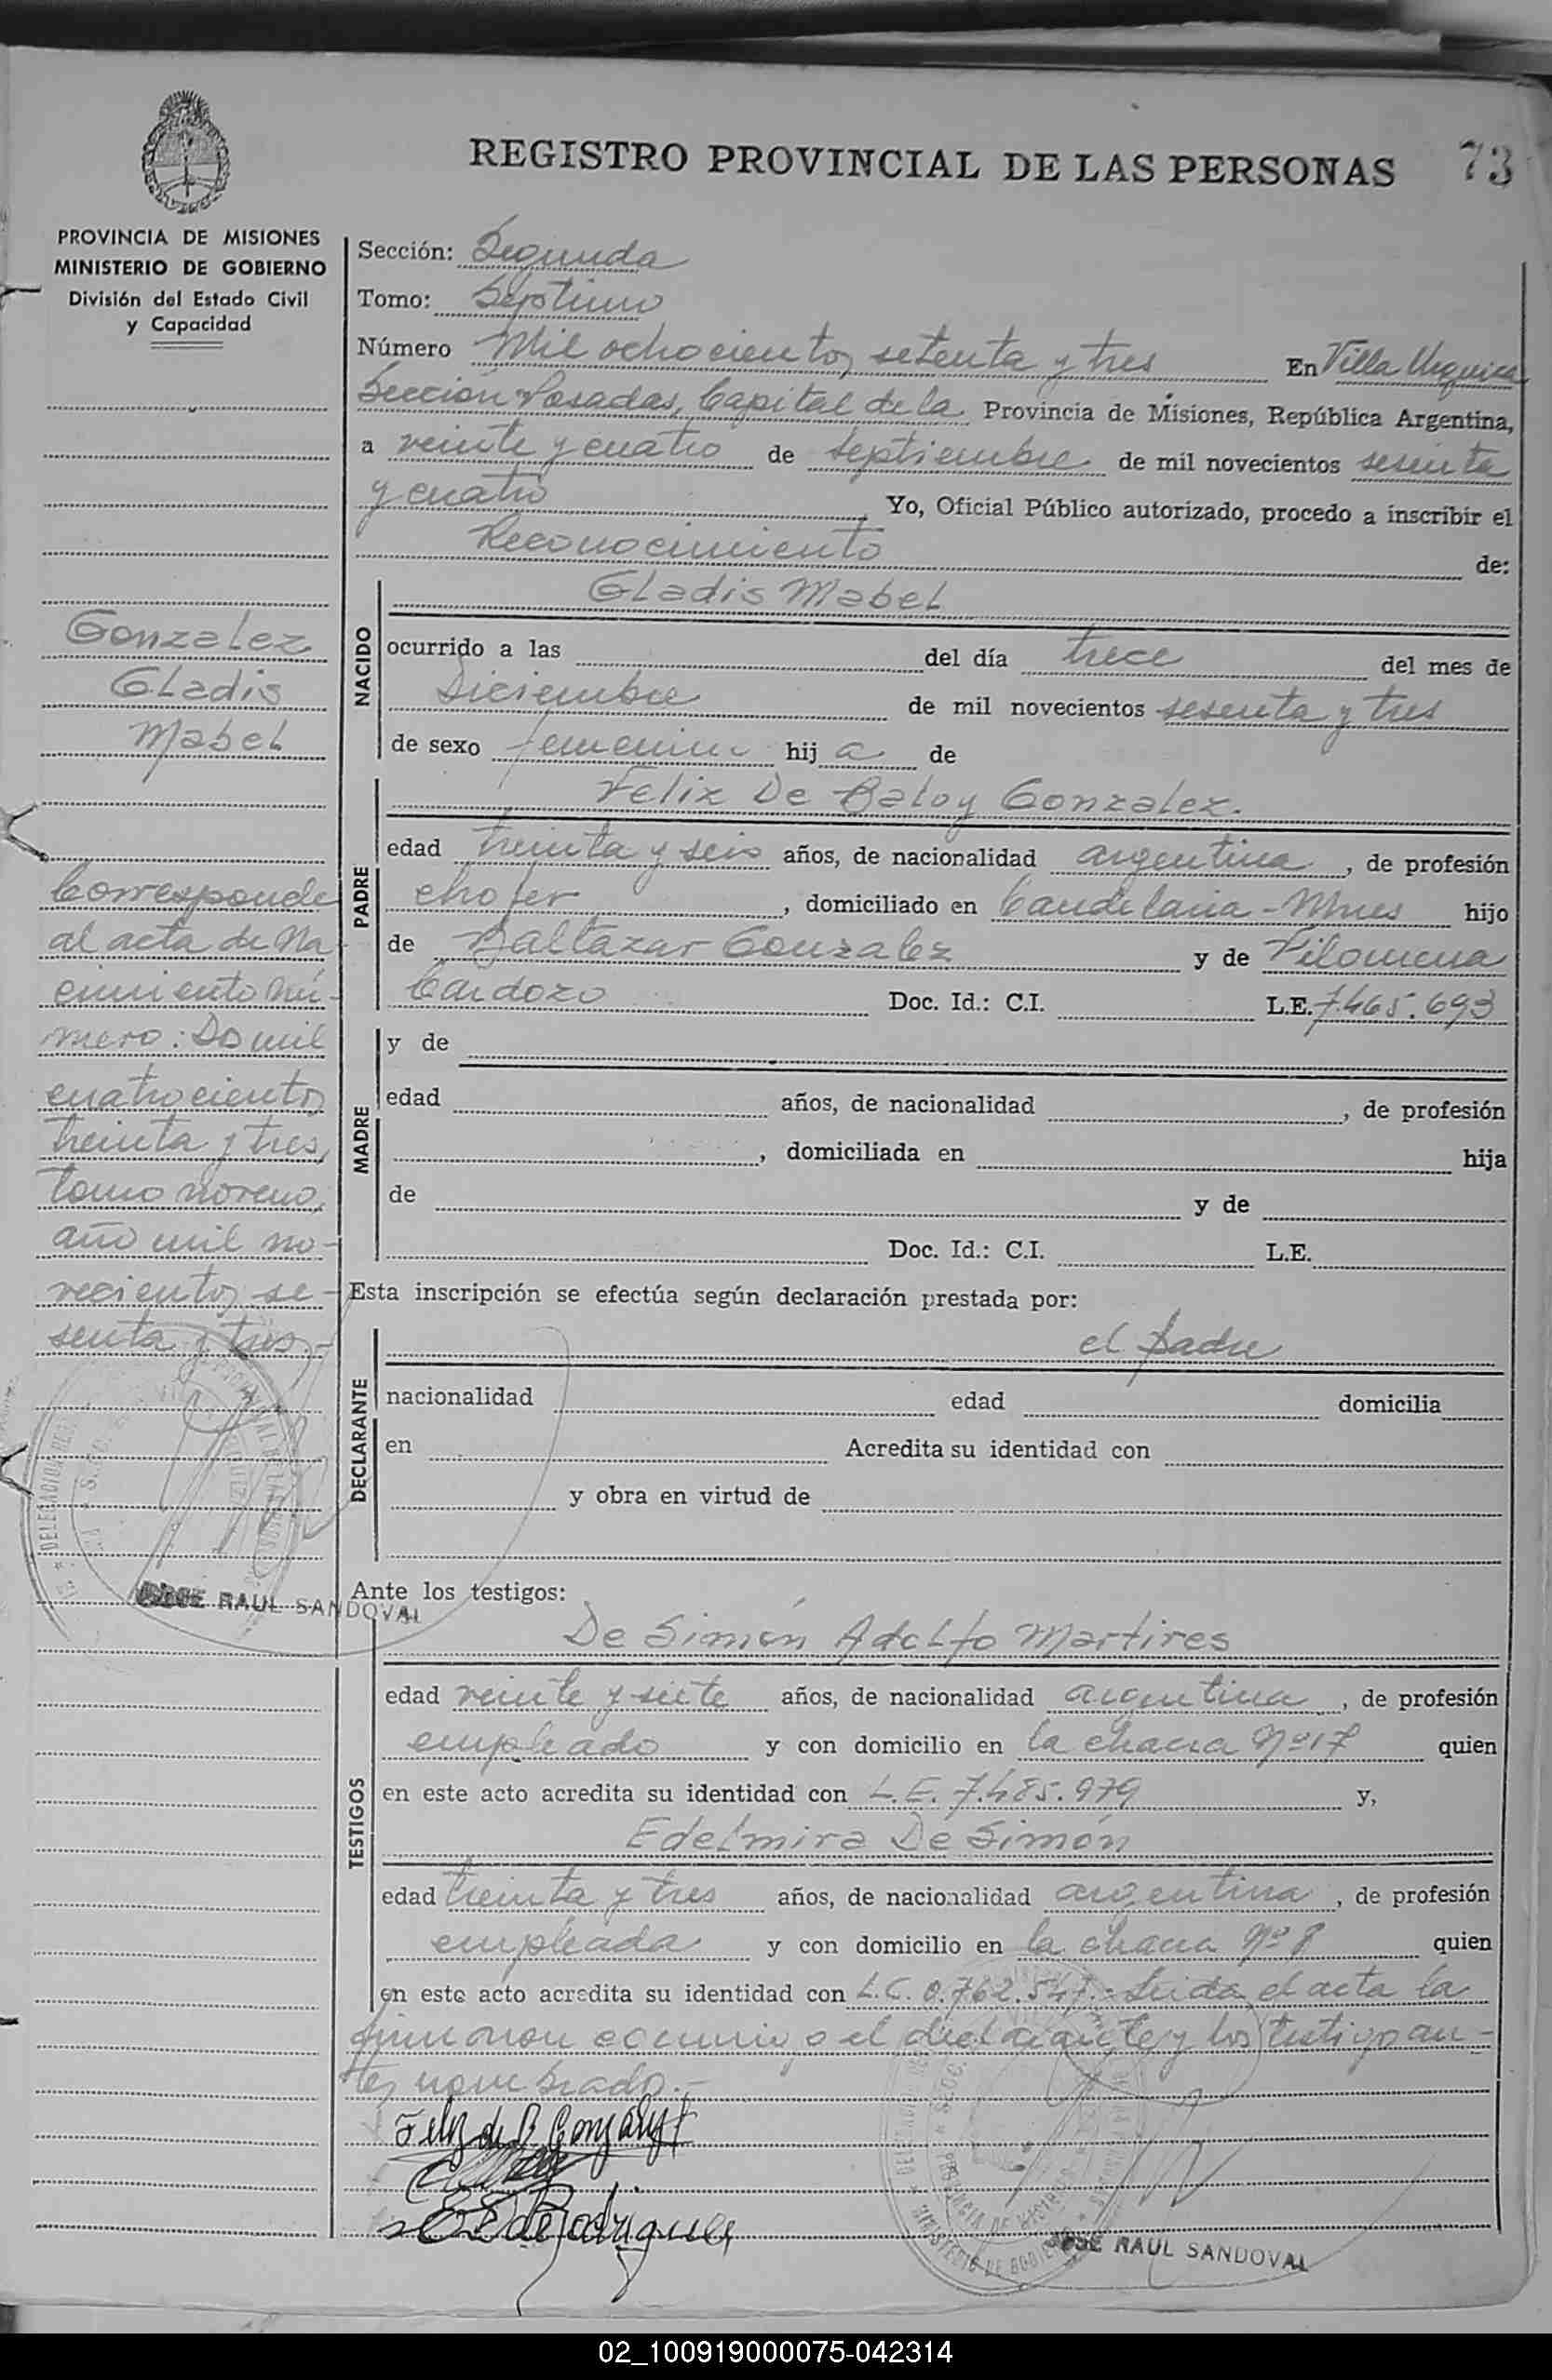 REGISTRO PROVINCIAL DE LAS PERSONAS 73
PROVINCIA DE MISIONES
MINISTERIO DE GOBIERNO
División del Estado Civil
y Capacidad
Gonzalez
Gladis
Mabel
Corresponde
al acta de Na
cimiento nú-
mero: Dos mil
cuatrocientos
treinta y tres,
tomo noveno,
año mil no-
vecientos se-
senta y tres.-
JOSE RAUL SANDOVAL
Sección: Segunda
Tomo: Séptimo
Número Mil ochocientos setenta y tres En Villa Urquiza
Sección Posadas, Capital de la Provincia de Misiones, República Argentina,
a veinte y cuatro de Septiembre de mil novecientos sesenta
y cuatro Yo, Oficial Público autorizado, procedo a inscribir el
Reconocimiento de:
NACIDO
Gladis Mabel
ocurrido a las del día trece del mes de
Diciembre de mil novecientos sesenta y tres
de sexo femenino hija de
PADRE
Felix De Baloy Gonzalez.
edad treinta y seis años, de nacionalidad argentina, de profesión
chofer, domiciliado en Candelaria - Mnes hijo
de Baltazar Gonzalez y de Filomena
Cardozo Doc. Id.: C.I. L.E. 7.465.693
MADRE
y de
edad años, de nacionalidad , de profesión
, domiciliada en hija
de y de
Doc. Id.: C.I. L.E.
Esta inscripción se efectúa según declaración prestada por:
DECLARANTE
el padre
nacionalidad edad domicilia
en Acredita su identidad con
y obra en virtud de
Ante los testigos:
TESTIGOS
De Simón Adolfo Martires
edad veinte y siete años, de nacionalidad argentina, de profesión
empleado y con domicilio en la chacra Nº 17 quien
en este acto acredita su identidad con L.E. 7.485.979 y,
Edelmira De Simón
edad treinta y tres años, de nacionalidad argentina, de profesión
empleada y con domicilio en la chacra Nº 8 quien
en este acto acredita su identidad con L.C. 0.762.547.- Leída el acta la
firmaron conmigo el declarante y los testigos an-
tes nombrado.-
Felix de B Gonzalez
E de Rodriguez
JOSE RAUL SANDOVAL
02_100919000075-042314